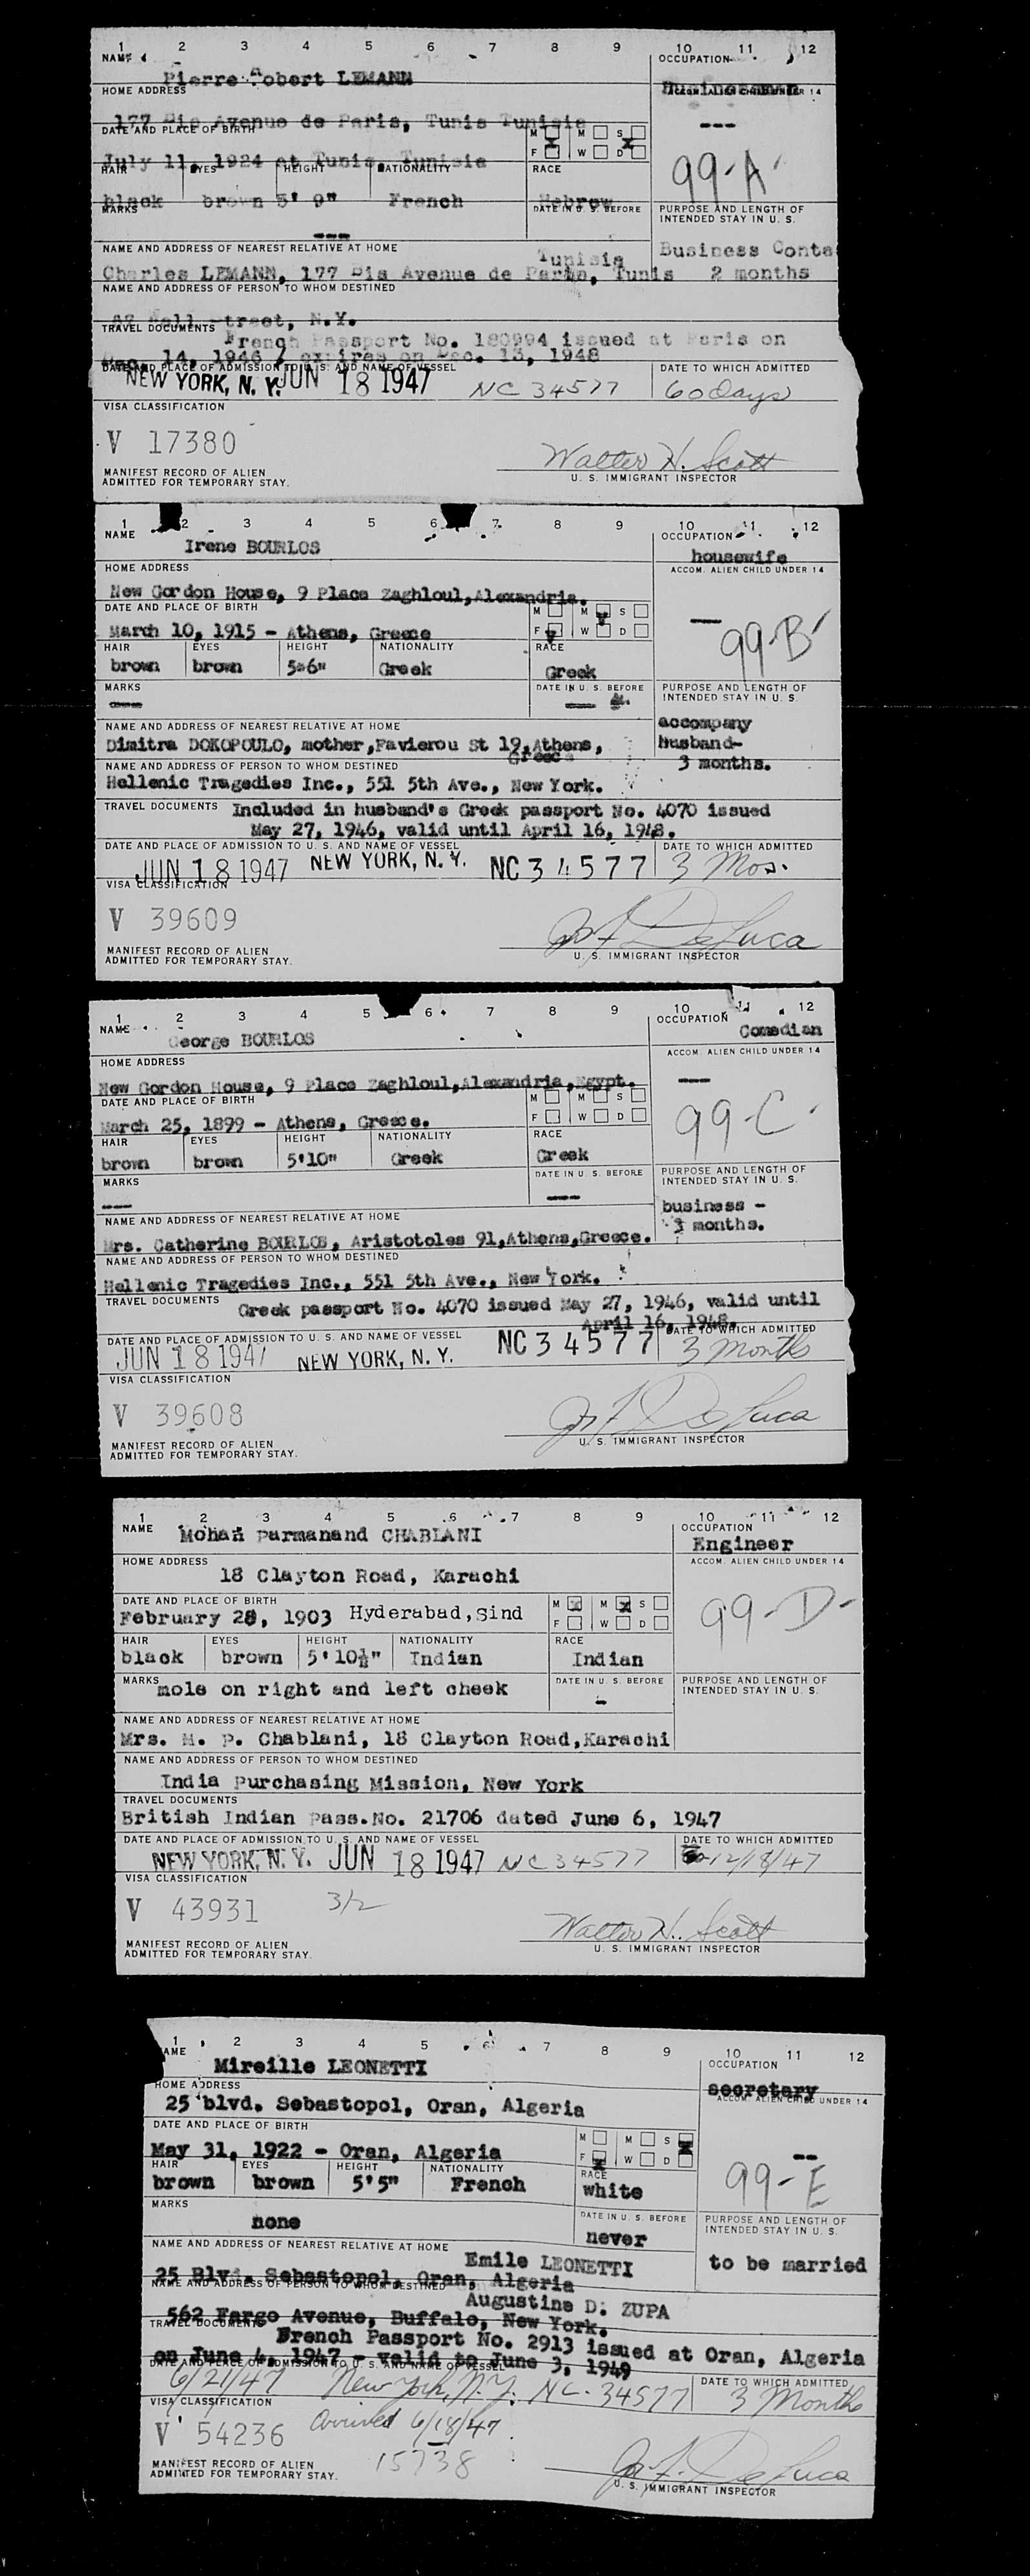 1 2 3 4 5 6 7 8 9 10 11 12
NAME OCCUPATION
Pierre Robert LEMANN
HOME ADDRESS ACCOM. ALIEN CHILD UNDER 14
177 Bis Avenue de Paris, Tunis Tunisia ---
DATE AND PLACE OF BIRTH M M S
July 11, 1924 at Tunis, Tunisia F W D 99-A
HAIR EYES HEIGHT NATIONALITY RACE
black brown 5' 9" French Hebrew
MARKS DATE IN U. S. BEFORE PURPOSE AND LENGTH OF INTENDED STAY IN U. S.
---
NAME AND ADDRESS OF NEAREST RELATIVE AT HOME Tunisia Business Conta
Charles LEMANN, 177 Bis Avenue de Paris, Tunis 2 months
NAME AND ADDRESS OF PERSON TO WHOM DESTINED
Street, N.Y.
TRAVEL DOCUMENTS French Passport No. 180994 issued at Paris on
Dec. 14, 1946 / expires on Dec. 13, 1948
DATE AND PLACE OF ADMISSION TO U. S. AND NAME OF VESSEL DATE TO WHICH ADMITTED
NEW YORK, N. Y. JUN 18 1947 NC 34577 60 days
VISA CLASSIFICATION
V 17380 Walter H. Scott
MANIFEST RECORD OF ALIEN U. S. IMMIGRANT INSPECTOR
ADMITTED FOR TEMPORARY STAY.
1 2 3 4 5 6 7 8 9 10 11 12
NAME OCCUPATION
Irene BOURLOS housewife
HOME ADDRESS ACCOM. ALIEN CHILD UNDER 14
New Gordon House, 9 Place Zaghloul,Alexandria.
DATE AND PLACE OF BIRTH M M S
March 10, 1915 - Athens, Greece F W D 99-B
HAIR EYES HEIGHT NATIONALITY RACE
brown brown 5-6" Greek Greek
MARKS DATE IN U. S. BEFORE PURPOSE AND LENGTH OF INTENDED STAY IN U. S.
---
NAME AND ADDRESS OF NEAREST RELATIVE AT HOME accompany
Dimitra DOKOPOULO, mother,Favierou St 19,Athens, husband-
Greece
NAME AND ADDRESS OF PERSON TO WHOM DESTINED 3 months.
Hellenic Tragedies Inc., 551 5th Ave., New York.
TRAVEL DOCUMENTS Included in husband's Greek passport No. 4070 issued
May 27, 1946, valid until April 16, 1948.
DATE AND PLACE OF ADMISSION TO U. S. AND NAME OF VESSEL DATE TO WHICH ADMITTED
JUN 18 1947 NEW YORK, N. Y. NC 34577 3 Mos.
VISA CLASSIFICATION
V 39609 Jos F DeLuca
MANIFEST RECORD OF ALIEN U. S. IMMIGRANT INSPECTOR
ADMITTED FOR TEMPORARY STAY.
1 2 3 4 5 6 7 8 9 10 11 12
NAME OCCUPATION
George BOURLOS Comedian
HOME ADDRESS ACCOM. ALIEN CHILD UNDER 14
New Gordon House, 9 Place Zaghloul,Alexandria,Egypt. ---
DATE AND PLACE OF BIRTH M M S
March 25, 1899 - Athens, Greece. F W D 99-C
HAIR EYES HEIGHT NATIONALITY RACE
brown brown 5'10" Greek Greek
MARKS DATE IN U. S. BEFORE PURPOSE AND LENGTH OF INTENDED STAY IN U. S.
--- --- business -
NAME AND ADDRESS OF NEAREST RELATIVE AT HOME 3 months.
Mrs. Catherine BOURLOS, Aristotoles 91,Athens,Greece.
NAME AND ADDRESS OF PERSON TO WHOM DESTINED
Hellenic Tragedies Inc., 551 5th Ave., New York.
TRAVEL DOCUMENTS Greek passport No. 4070 issued May 27, 1946, valid until
April 16, 1948.
DATE AND PLACE OF ADMISSION TO U. S. AND NAME OF VESSEL DATE TO WHICH ADMITTED
JUN 18 1947 NEW YORK, N. Y. NC 34577 3 Months
VISA CLASSIFICATION
V 39608 Jos F DeLuca
MANIFEST RECORD OF ALIEN U. S. IMMIGRANT INSPECTOR
ADMITTED FOR TEMPORARY STAY.
1 2 3 4 5 6 7 8 9 10 11 12
NAME OCCUPATION
Mohan Parmanand CHABLANI Engineer
HOME ADDRESS ACCOM. ALIEN CHILD UNDER 14
18 Clayton Road, Karachi
DATE AND PLACE OF BIRTH M M S
February 28, 1903 Hyderabad,Sind F W D 99-D-
HAIR EYES HEIGHT NATIONALITY RACE
black brown 5'10½" Indian Indian
MARKS DATE IN U. S. BEFORE PURPOSE AND LENGTH OF INTENDED STAY IN U. S.
mole on right and left cheek -
NAME AND ADDRESS OF NEAREST RELATIVE AT HOME
Mrs. M. P. Chablani, 18 Clayton Road,Karachi
NAME AND ADDRESS OF PERSON TO WHOM DESTINED
India Purchasing Mission, New York
TRAVEL DOCUMENTS
British Indian Pass.No. 21706 dated June 6, 1947
DATE AND PLACE OF ADMISSION TO U. S. AND NAME OF VESSEL DATE TO WHICH ADMITTED
NEW YORK, N. Y. JUN 18 1947 NC 34577 12/18/47
VISA CLASSIFICATION
V 43931 3/2 Walter H. Scott
MANIFEST RECORD OF ALIEN U. S. IMMIGRANT INSPECTOR
ADMITTED FOR TEMPORARY STAY.
1 2 3 4 5 6 7 8 9 10 11 12
NAME OCCUPATION
Mireille LEONETTI secretary
HOME ADDRESS ACCOM. ALIEN CHILD UNDER 14
25 blvd. Sebastopol, Oran, Algeria
DATE AND PLACE OF BIRTH M M S
May 31, 1922 - Oran, Algeria F W D --
HAIR EYES HEIGHT NATIONALITY RACE 99-E
brown brown 5'5" French white
MARKS DATE IN U. S. BEFORE PURPOSE AND LENGTH OF INTENDED STAY IN U. S.
none never
NAME AND ADDRESS OF NEAREST RELATIVE AT HOME Emile LEONETTI to be married
25 Blvd. Sebastopol, Oran, Algeria
NAME AND ADDRESS OF PERSON TO WHOM DESTINED Augustine D. ZUPA
562 Fargo Avenue, Buffalo, New York.
TRAVEL DOCUMENTS French Passport No. 2913 issued at Oran, Algeria
on June 4, 1947 - valid to June 3, 1949
DATE AND PLACE OF ADMISSION TO U. S. AND NAME OF VESSEL DATE TO WHICH ADMITTED
6/21/47 New York, N.Y. NC-34577 3 Months
VISA CLASSIFICATION Arrived 6/18/47
V 54236 15738 Jos. F. DeLuca
MANIFEST RECORD OF ALIEN U. S. IMMIGRANT INSPECTOR
ADMITTED FOR TEMPORARY STAY.